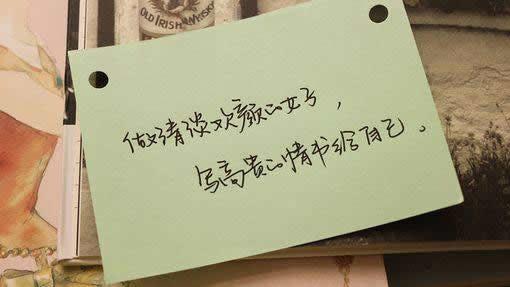 OLD IRISH WHISKY
做清谈欢颜的女子，
写高贵的情书给自己。